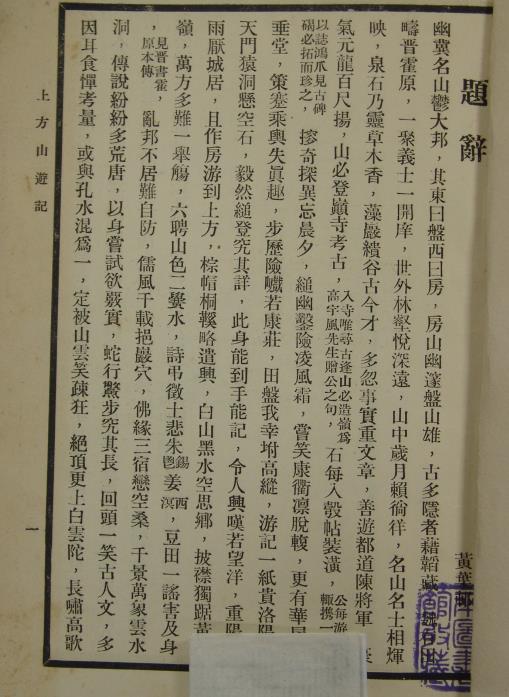 題辭
黃葉邨
幽冀名山鬱大邦，其東曰盤西曰房，房山幽邃盤山雄，古多隱者藉韜藏，
疇晋霍原，一聚義士一開庠，世外林壑悅深遠，山中歲月賴徜徉，名山名士相煇
映，泉石乃靈草木香，藻嚴繢谷古今才，多忽事實重文章，善遊都道陳將軍，
氣元龍百尺揚，山必登巔寺考古，入寺唯尋古逢山必造嶺爲高宇風先生贈公之句，石每入彀帖裝潢，公每游輒携一
以誌鴻爪見古碑碣必拓而珍之，搜奇探異忘晨夕，縋幽鑿險凌風霜，嘗笑康衢凛脫輹，更有華屋
垂堂，策蹇乘輿失眞趣，步歷險巇若康莊，田盤我幸坿高縱，游記一紙貴洛陽
天門猿洞懸空石，毅然縋登究其詳，此身能到手能記，令人興嘆若望洋，重陽
雨厭城居，且作房游到上方，棕帽桐鞵略遣興，白山黑水空思鄉，披襟獨踞
嶺，萬方多難一舉觴，六聘山色二黌水，詩弔徵士悲朱鬯錫姜西溟，豆田一謠害及身
見晋書霍原本傳，亂邦不居難自防，儒風千載挹巖穴，佛緣三宿戀空桑，千景萬象雲水
洞，傳說紛紛多荒唐，以身嘗試欲覈實，蛇行鷩步究其長，回頭一笑古人文，多
因耳食憚考量，或與孔水混爲一，定被山雲笑疎狂，絕頂更上白雲陀，長嘯高歌
上方山遊記
一